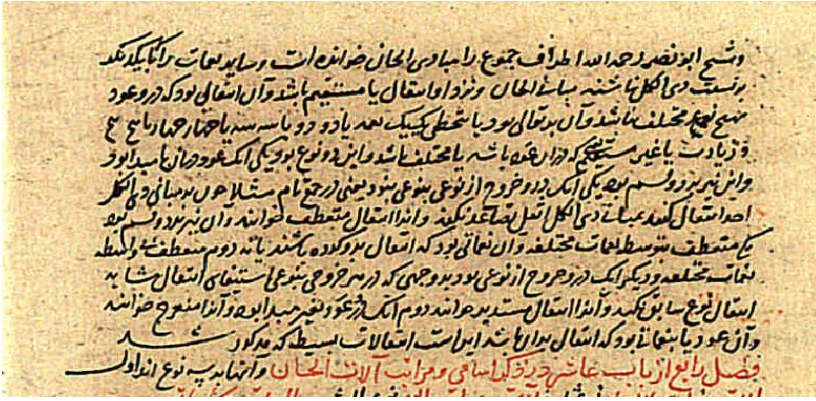 و شیخ ابو نصر رحمه الله اطراف جموع را مبادی الحان خوانده است و سایر نغمات را که با یکدیگر
بر نسبت ذی الکل باشند مبانی الحان و نزد او انتقال یا مستقیم باشد و آن انتقالی بود که در و عود
بهیچ نغمه مختلف نباشد و آن بر توالی بود یا بتخطی یک یک بعد یا دو دو یا سه سه یا چهار چهار یا پنج پنج
و زیادت یا غیر مستقیم که در آن عود باشد یا مختلف باشد و این دو نوع بود یکی آنک عود در آن با مبدا بود
و این نیز بر دو قسم بود یکی آنک در و خروج از نوعی بنوعی بود یعنی در جمع تام مثلا چون بر مبانی ذی الکل
احد انتقال کنند بمبانی ذی الکل اثقل تصاعد نکند و آنرا انتقال منعطف خوانند و آن نیز بر دو قسم بود
یکی منعطف بتوسط نغمات مختلفه و آن نغماتی بود که انتقال برو کرده باشند یا نه دوم منعطف بی واسطه
نغمات مختلفه و دیگر آنک در و خروج از نوعی بود بر وجهی که در هر خروجی بنوعی استیفای انتقال مشابه
انتقال نوع سابق بکند و آنرا انتقال مستدیر خوانند دوم آنک در عود بغیر مبدا بود و آنرا منعرج خوانند
و آن عود یا بنغماتی بود که انتقال بر آن باشد این است انتقالات بسیطه که مذکور شد
فصل رابع از باب عاشر در ذکر اسامی و مراتب آلات الحان و آنها بر سه نوع اند اول